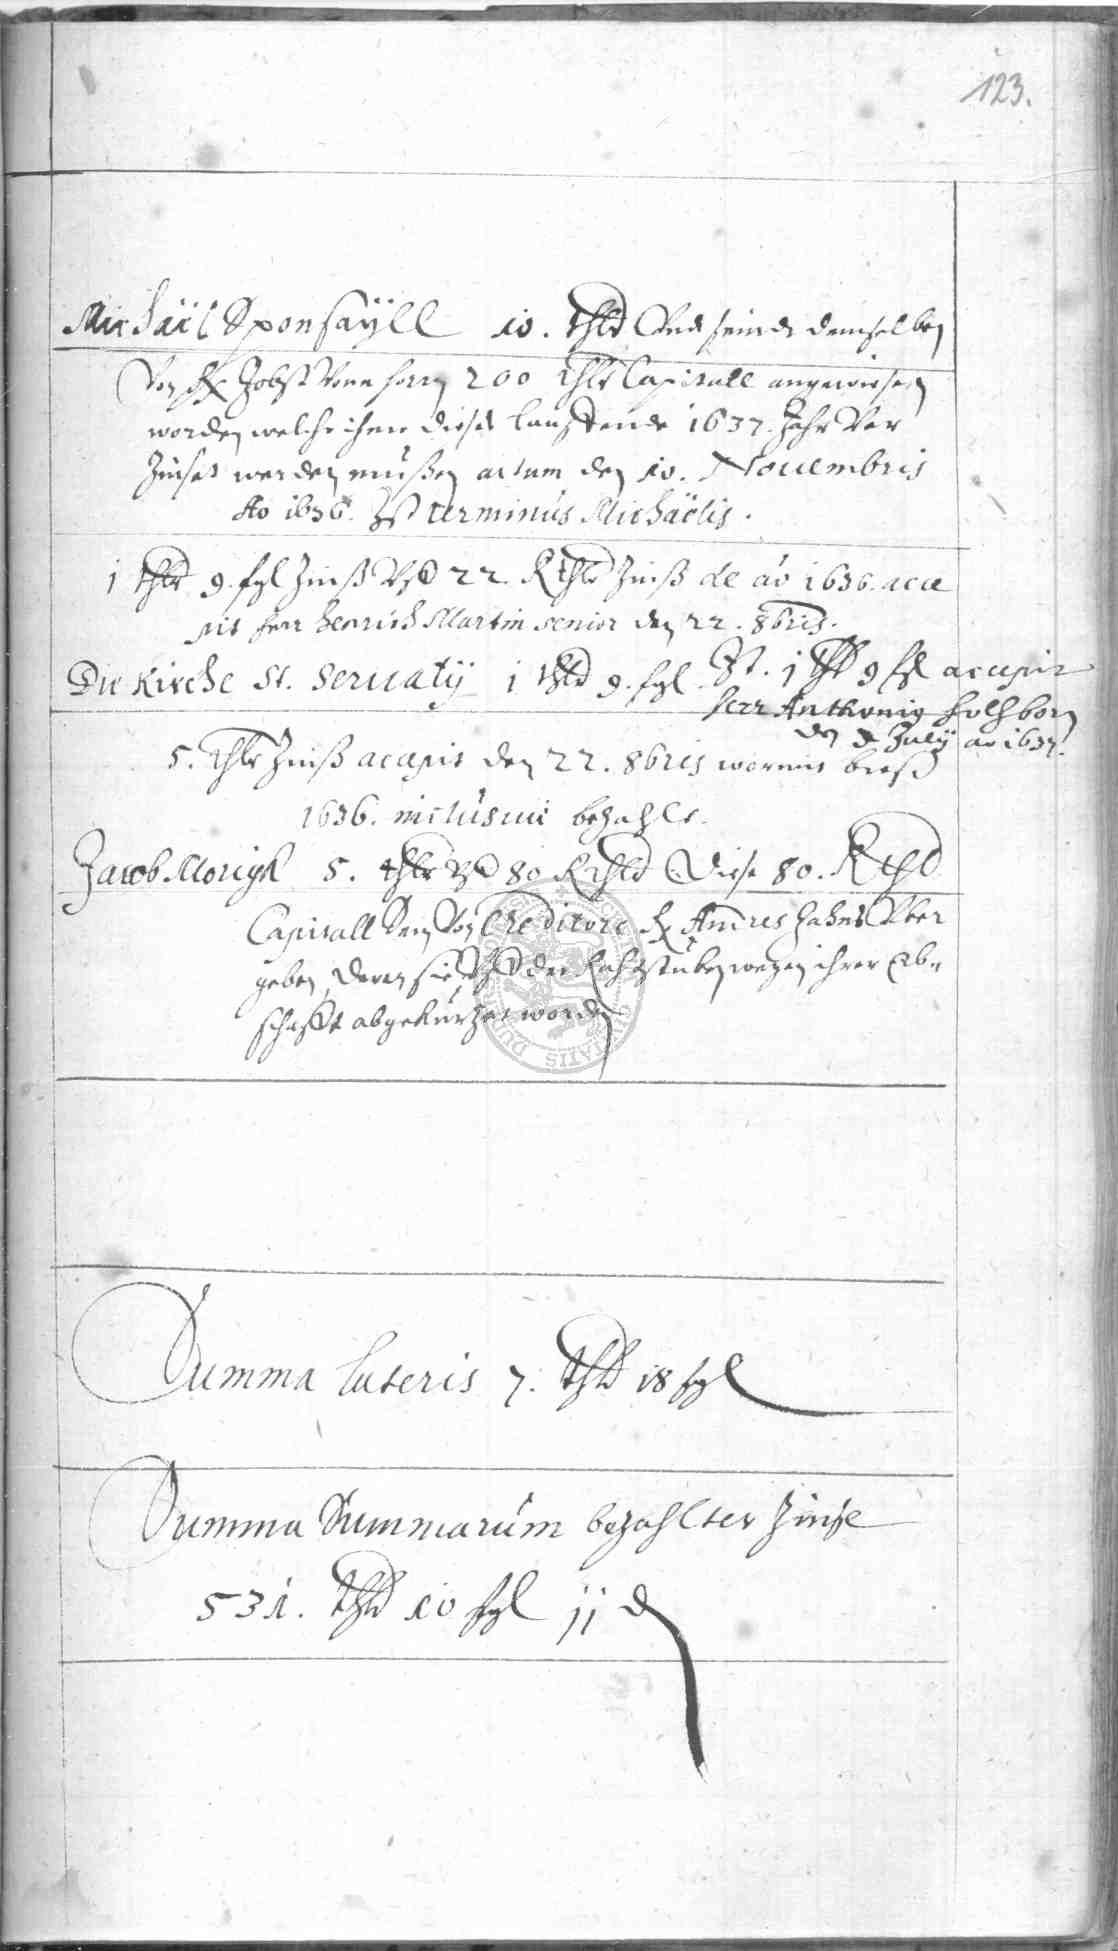 123.
Michäel Sponsäÿll 10. thlr Und seindt demselben
Von H. Jobst Vonn 200 thlr Capitall angewiesen
worden welche ihme dieses lauffende 1637. Jahr Ver
Zinset werden mußen actum den 10. Nouembris
Ao 1636. Ist terminus Michäelis.
1 thlr 9 sgl Zinß Vf 22 Rthlr Zinß de ao 1636. acce
pit herr Henrich Martin senior den 22. 8bris.
Die Kirche St. Seruatÿ 1 thlr 9. sgl
Ist. 1 thlr 9 sgl accepit
herr Anthonig Holhborn
den Julÿ ao 1637.
5. thlr Zinß accepit den 22. 8bris wormit
1636. inclusiue bezahlt.
Jacob Morigk 5. thlr Vf 80 Rthlr Diese 80. Rthlr
Capitall Sein Von Creditore H. Andres Hahns Vber
geben, deren sie Vf der Rahtstuben wegen ihrer Ab-
schafft abgekürtzet worden
Summa lateris 7. thlr 18 sgl
Summa Summarum bezahlter Zinse
531. thlr 10 sgl 11 d